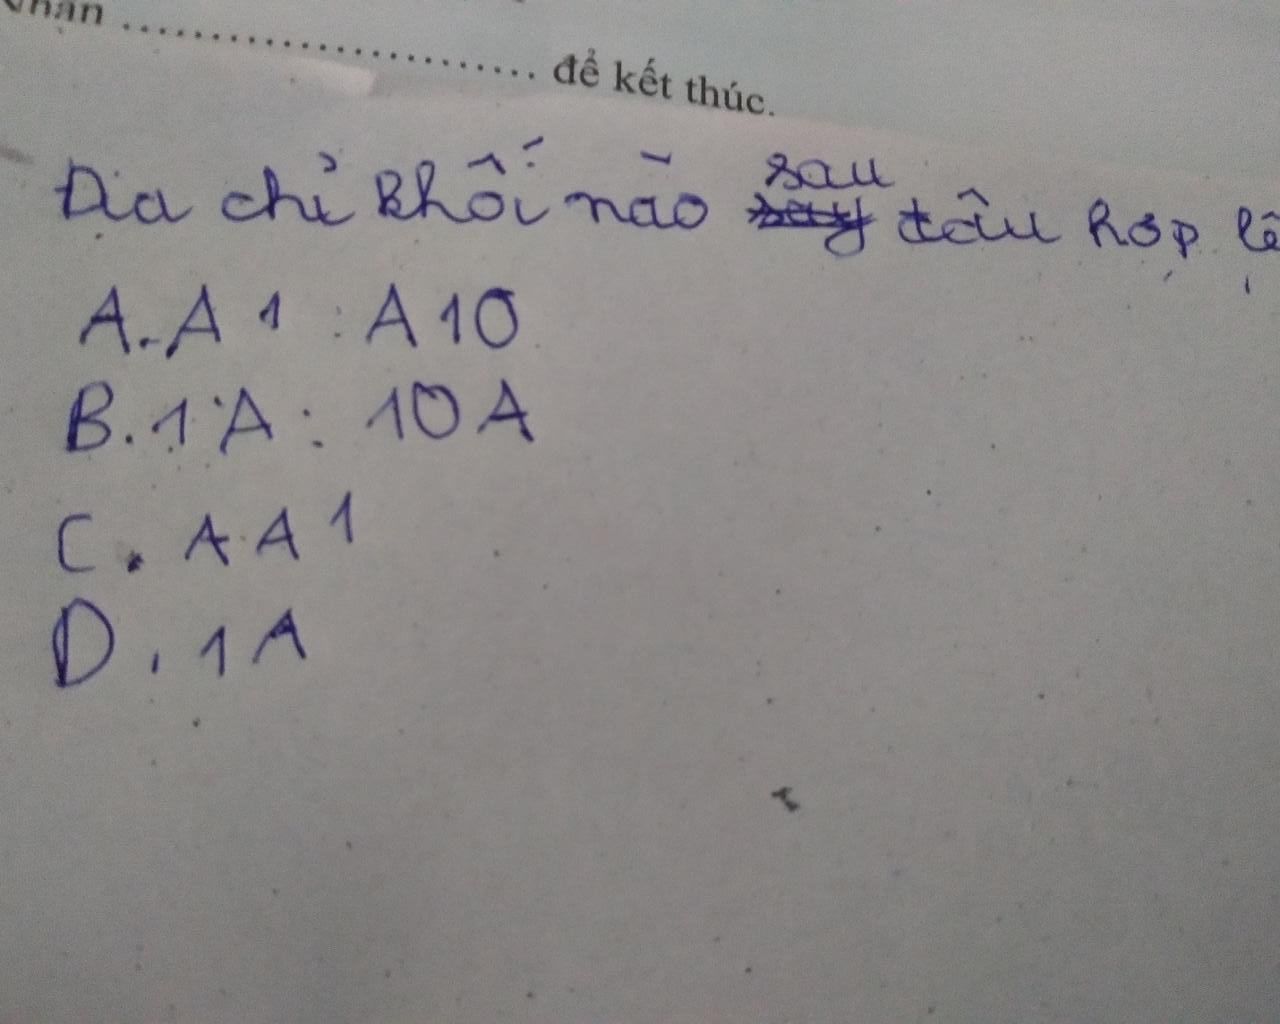 ................................ để kết thúc.
Địa chỉ khối nào sau đâu hợp lệ
A. A1 : A10
B. 1A : 10A
C. AA1
D. 1A